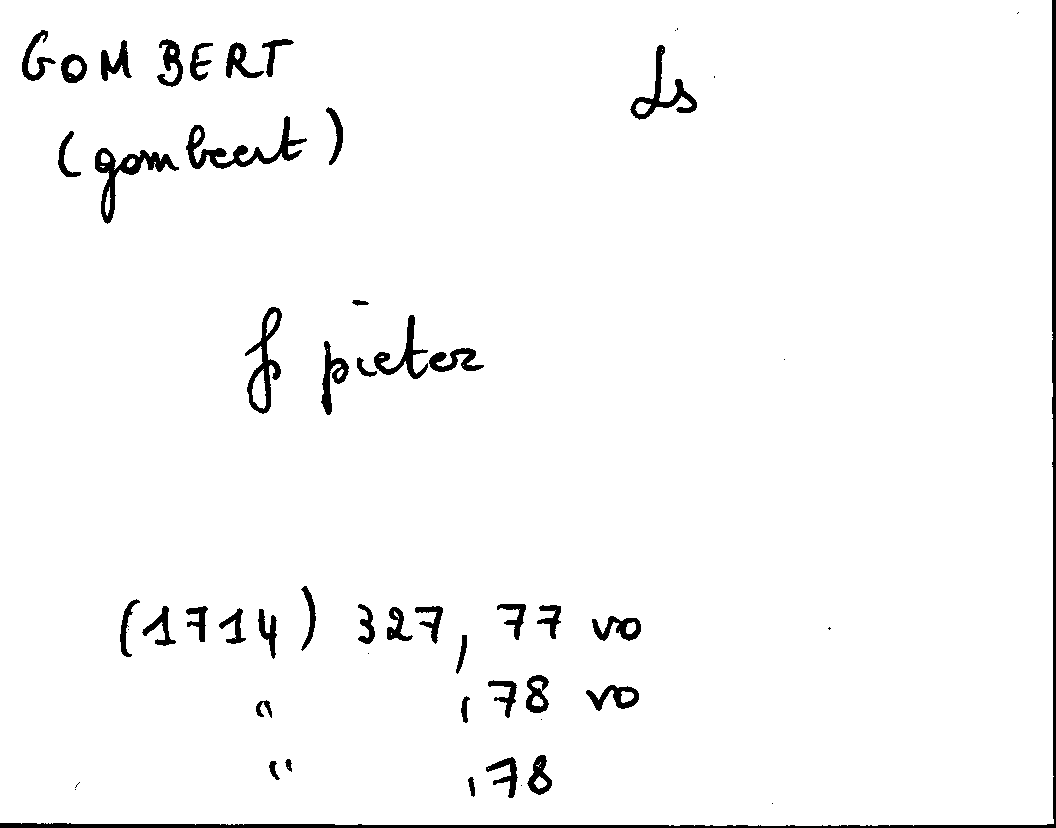 GOMBERT Ls
(gombeert)
f pieter
(1714) 327, 77 vo
" , 78 vo
" , 78